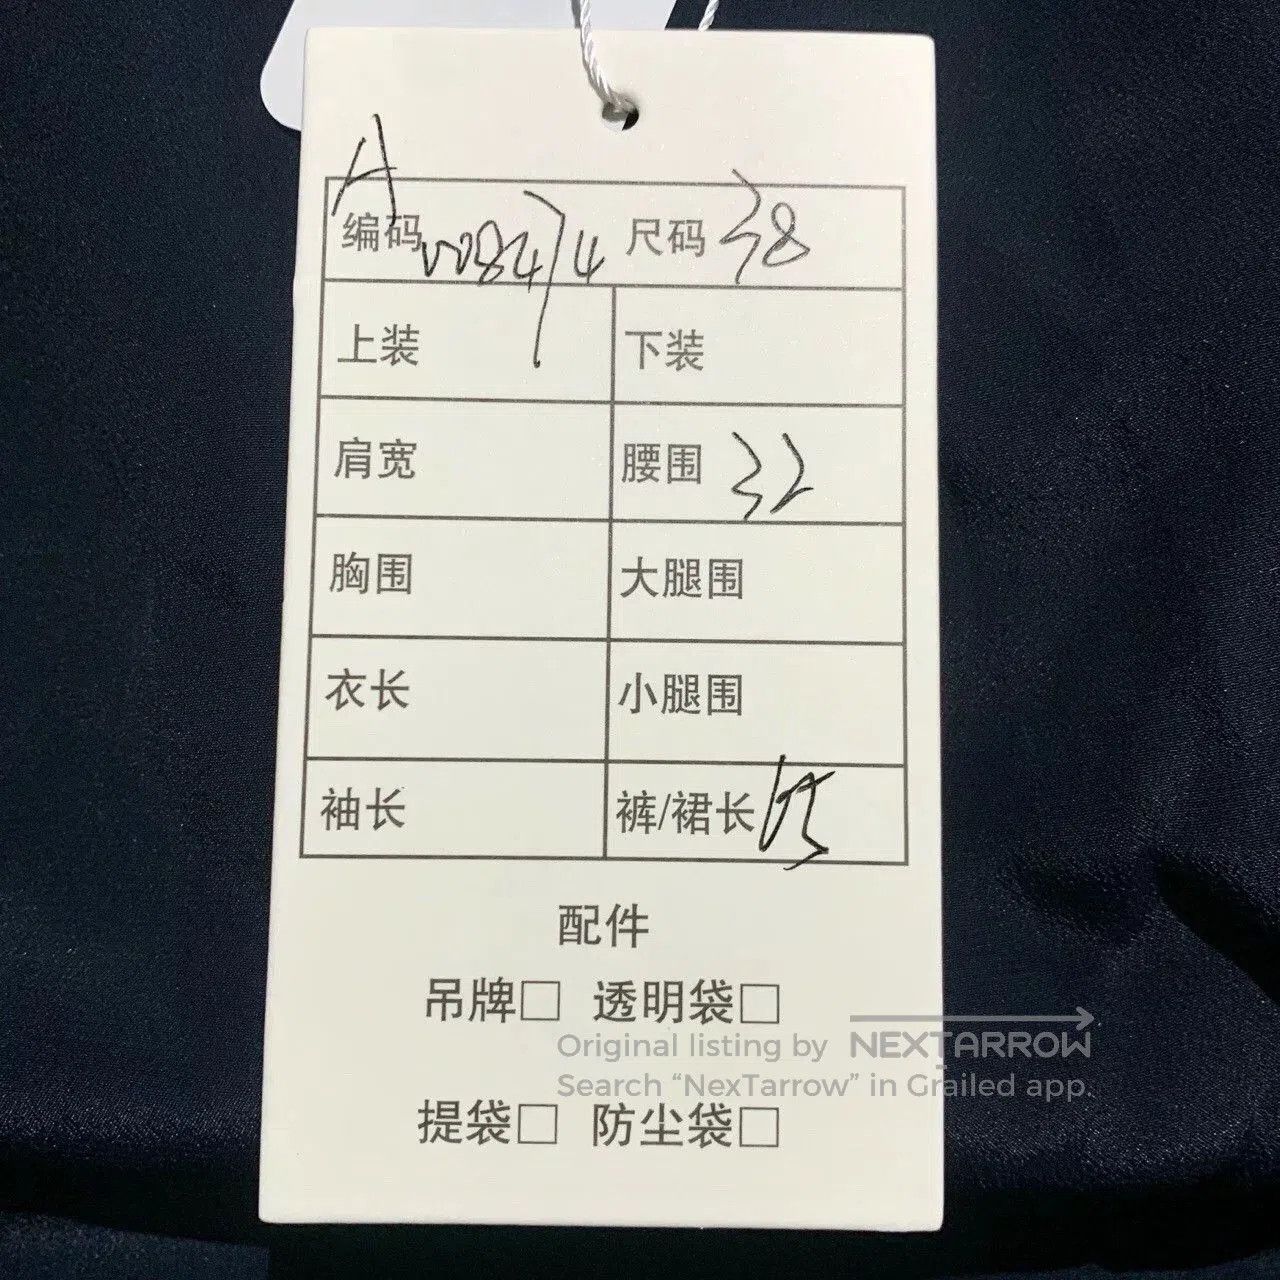 A
编码 008474 尺码 38
上装 下装
肩宽 腰围 32
胸围 大腿围
衣长 小腿围
袖长 裤/裙长
配件
吊牌□ 透明袋□
Original listing by NEXTARROW
Search “NexTarrow” in Grailed app.
提袋□ 防尘袋□